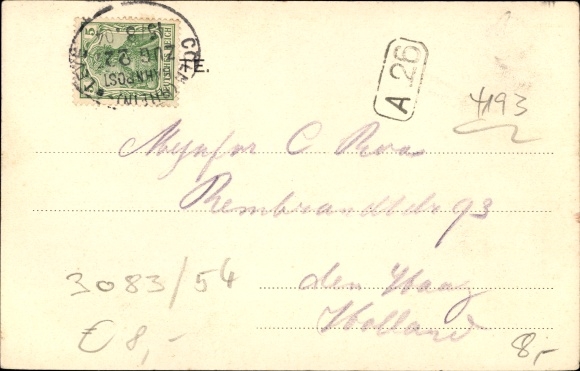 5
DEUTSCHES REICH
CÖLN
BAHNPOST
ZUG 22
E.
A 26
4193
Mynheer C Roos
Rembrandtstr 93
3083/54
den Haag
Holland
€ 8,-
8,-